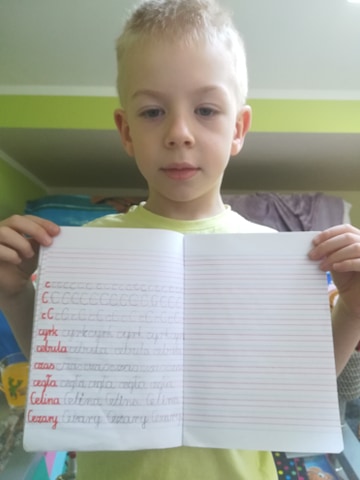 c c c c c c c c c c c c
C C C C C C C C C C C C
cC C C C C C C C
cyrk cyrk cyrk cyrk cyrk
cebula cebula cebula cebula
czas czas czas czas
cegła cegła cegła cegła cegła
Celina Celina Celina Celina
Cezary Cezary Cezary Cezary